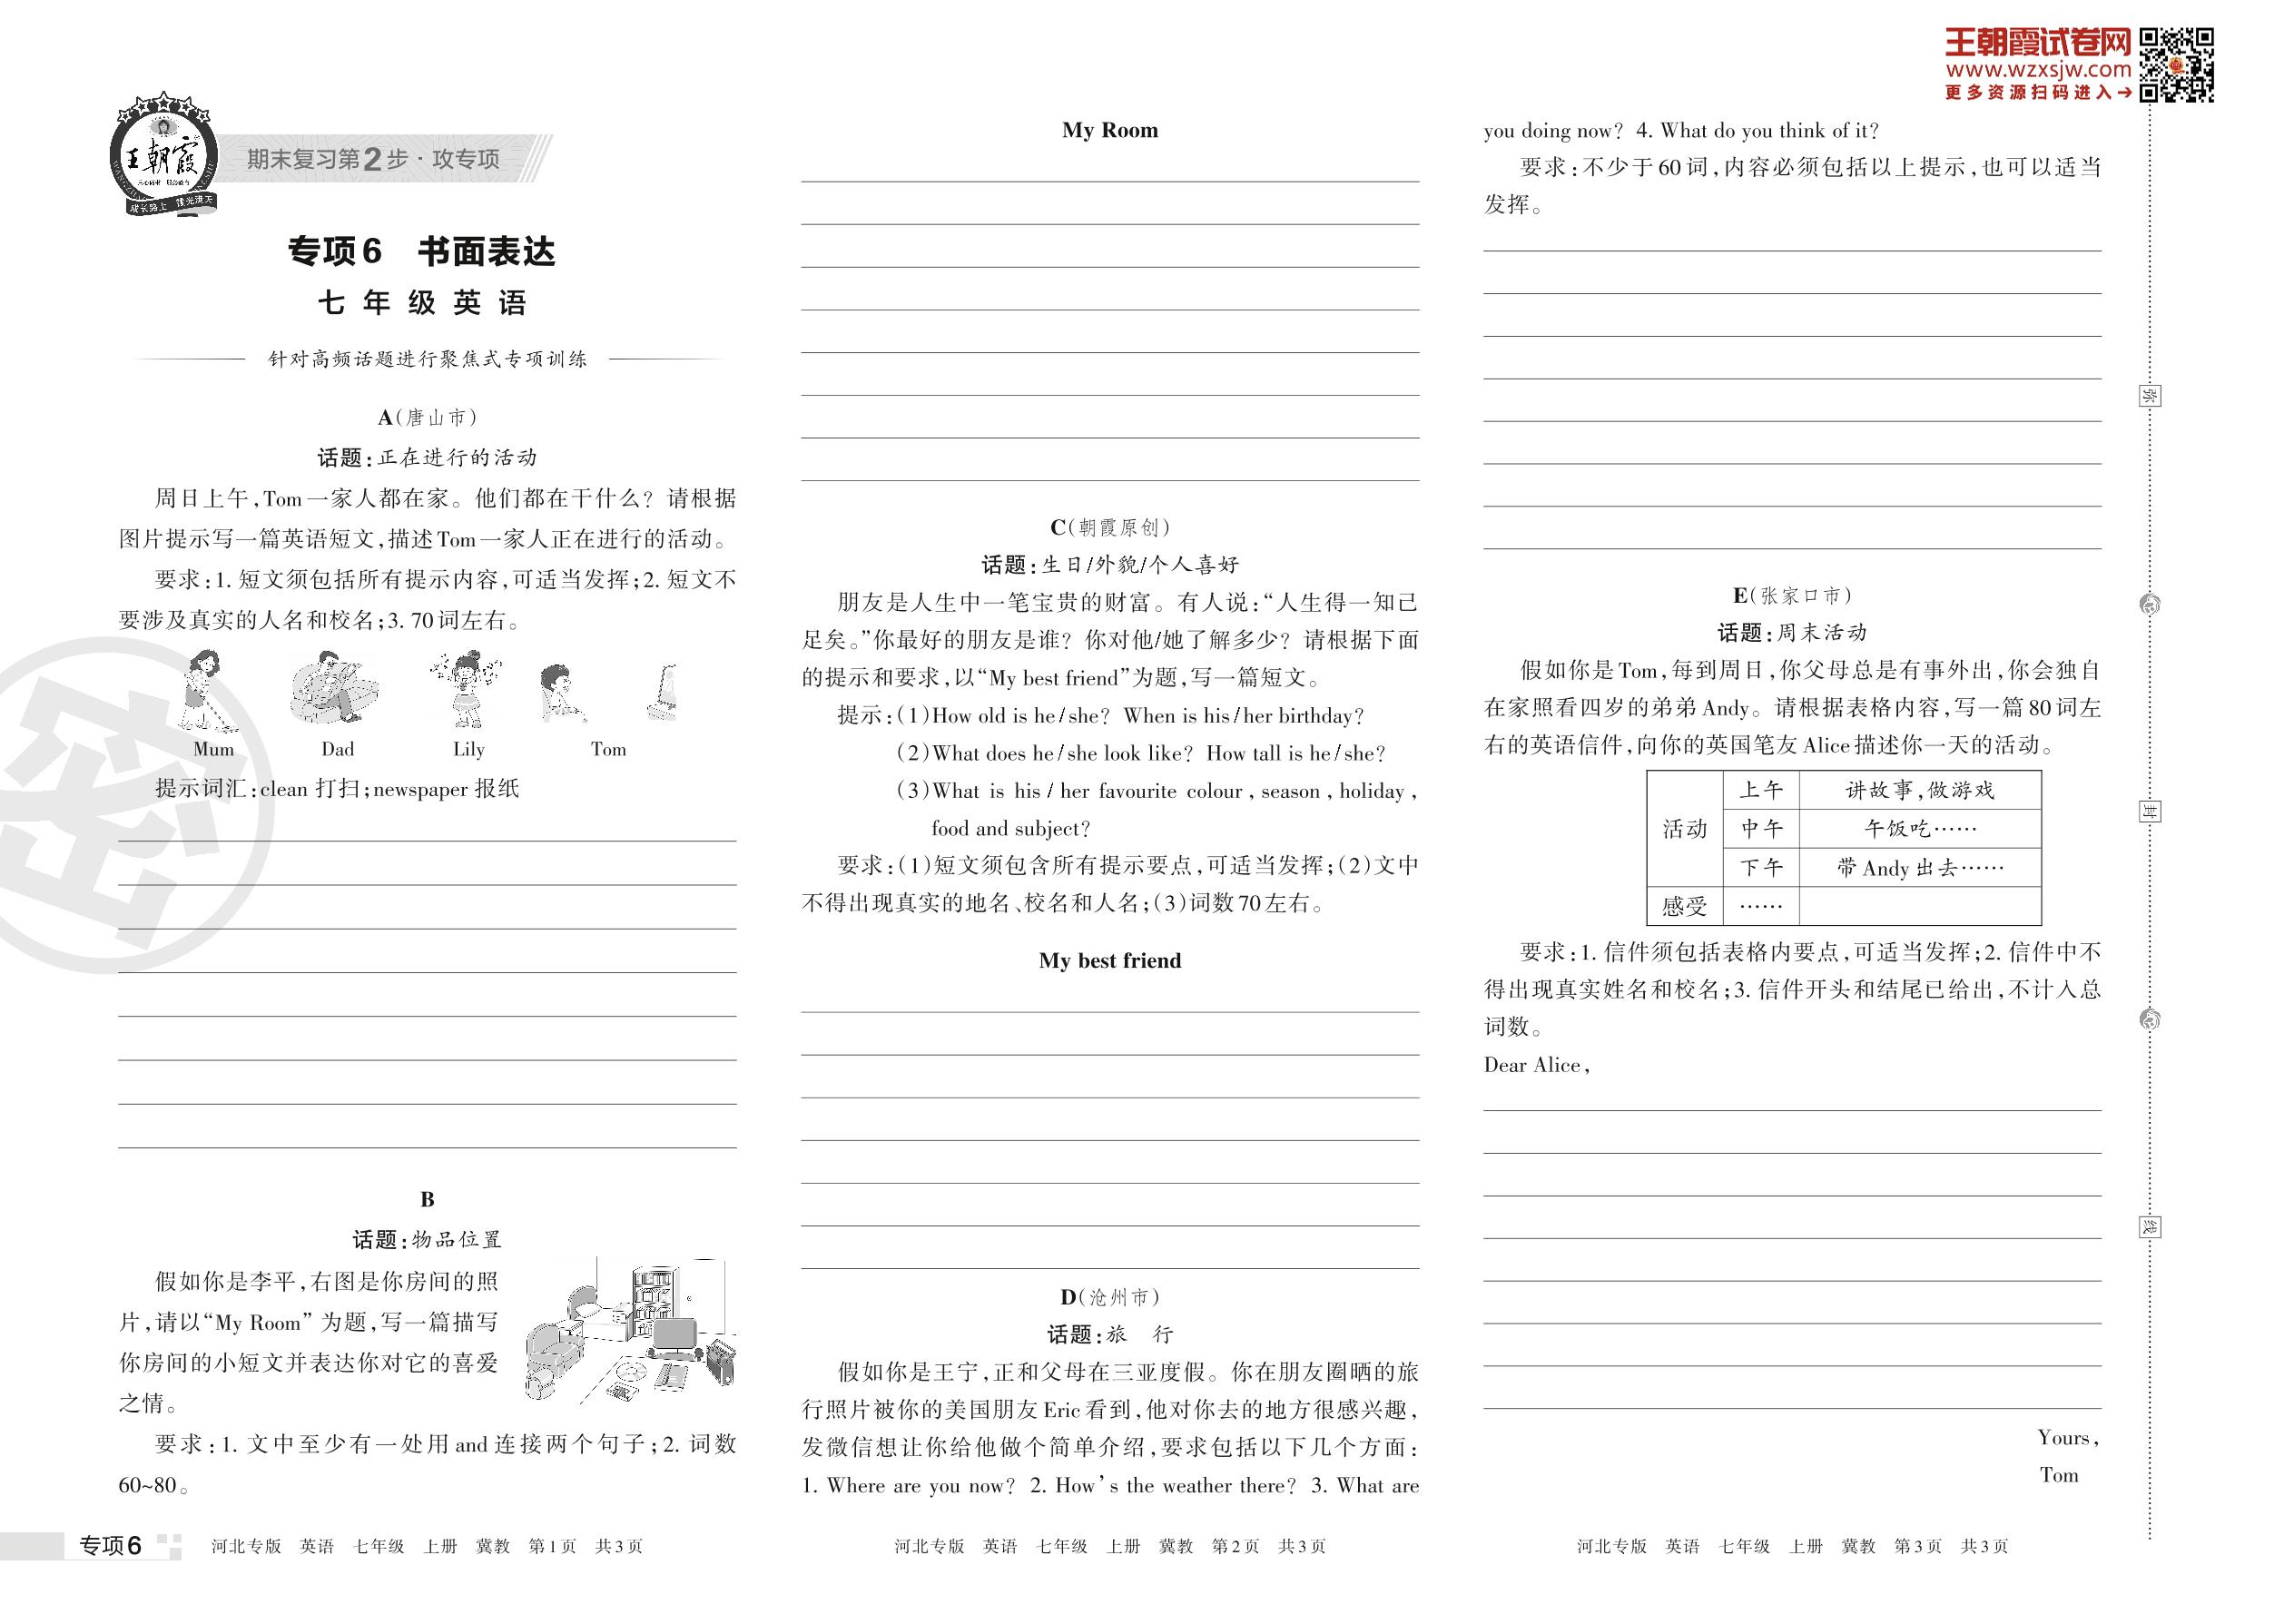 王朝霞试卷网
www.wzxsjw.com
更多资源扫码进入→
王朝霞
成长路上 霞光满天
期末复习第2步·攻专项
专项6 书面表达
七年级英语
针对高频话题进行聚焦式专项训练
A(唐山市)
话题:正在进行的活动
周日上午,Tom一家人都在家。他们都在干什么?请根据
图片提示写一篇英语短文,描述Tom一家人正在进行的活动。
要求:1. 短文须包括所有提示内容,可适当发挥;2. 短文不
要涉及真实的人名和校名;3. 70词左右。
Mum Dad Lily Tom
提示词汇:clean 打扫;newspaper 报纸
密
B
话题:物品位置
假如你是李平,右图是你房间的照
片,请以“My Room”为题,写一篇描写
你房间的小短文并表达你对它的喜爱
之情。
要求:1. 文中至少有一处用and连接两个句子;2. 词数
60~80。
专项6 河北专版 英语 七年级 上册 冀教 第1页 共3页
My Room
C(朝霞原创)
话题:生日/外貌/个人喜好
朋友是人生中一笔宝贵的财富。有人说:“人生得一知己
足矣。”你最好的朋友是谁?你对他/她了解多少?请根据下面
的提示和要求,以“My best friend”为题,写一篇短文。
提示:(1)How old is he/she? When is his/her birthday?
(2)What does he/she look like? How tall is he/she?
(3)What is his/her favourite colour, season, holiday,
food and subject?
要求:(1)短文须包含所有提示要点,可适当发挥;(2)文中
不得出现真实的地名、校名和人名;(3)词数70左右。
My best friend
D(沧州市)
话题:旅 行
假如你是王宁,正和父母在三亚度假。你在朋友圈晒的旅
行照片被你的美国朋友Eric看到,他对你去的地方很感兴趣,
发微信想让你给他做个简单介绍,要求包括以下几个方面:
1. Where are you now? 2. How's the weather there? 3. What are
河北专版 英语 七年级 上册 冀教 第2页 共3页
you doing now? 4. What do you think of it?
要求:不少于60词,内容必须包括以上提示,也可以适当
发挥。
E(张家口市)
话题:周末活动
假如你是Tom,每到周日,你父母总是有事外出,你会独自
在家照看四岁的弟弟Andy。请根据表格内容,写一篇80词左
右的英语信件,向你的英国笔友Alice描述你一天的活动。
活动 上午 讲故事,做游戏
中午 午饭吃……
下午 带Andy出去……
感受 ……
要求:1. 信件须包括表格内要点,可适当发挥;2. 信件中不
得出现真实姓名和校名;3. 信件开头和结尾已给出,不计入总
词数。
Dear Alice,
Yours,
Tom
河北专版 英语 七年级 上册 冀教 第3页 共3页
弥
封
线